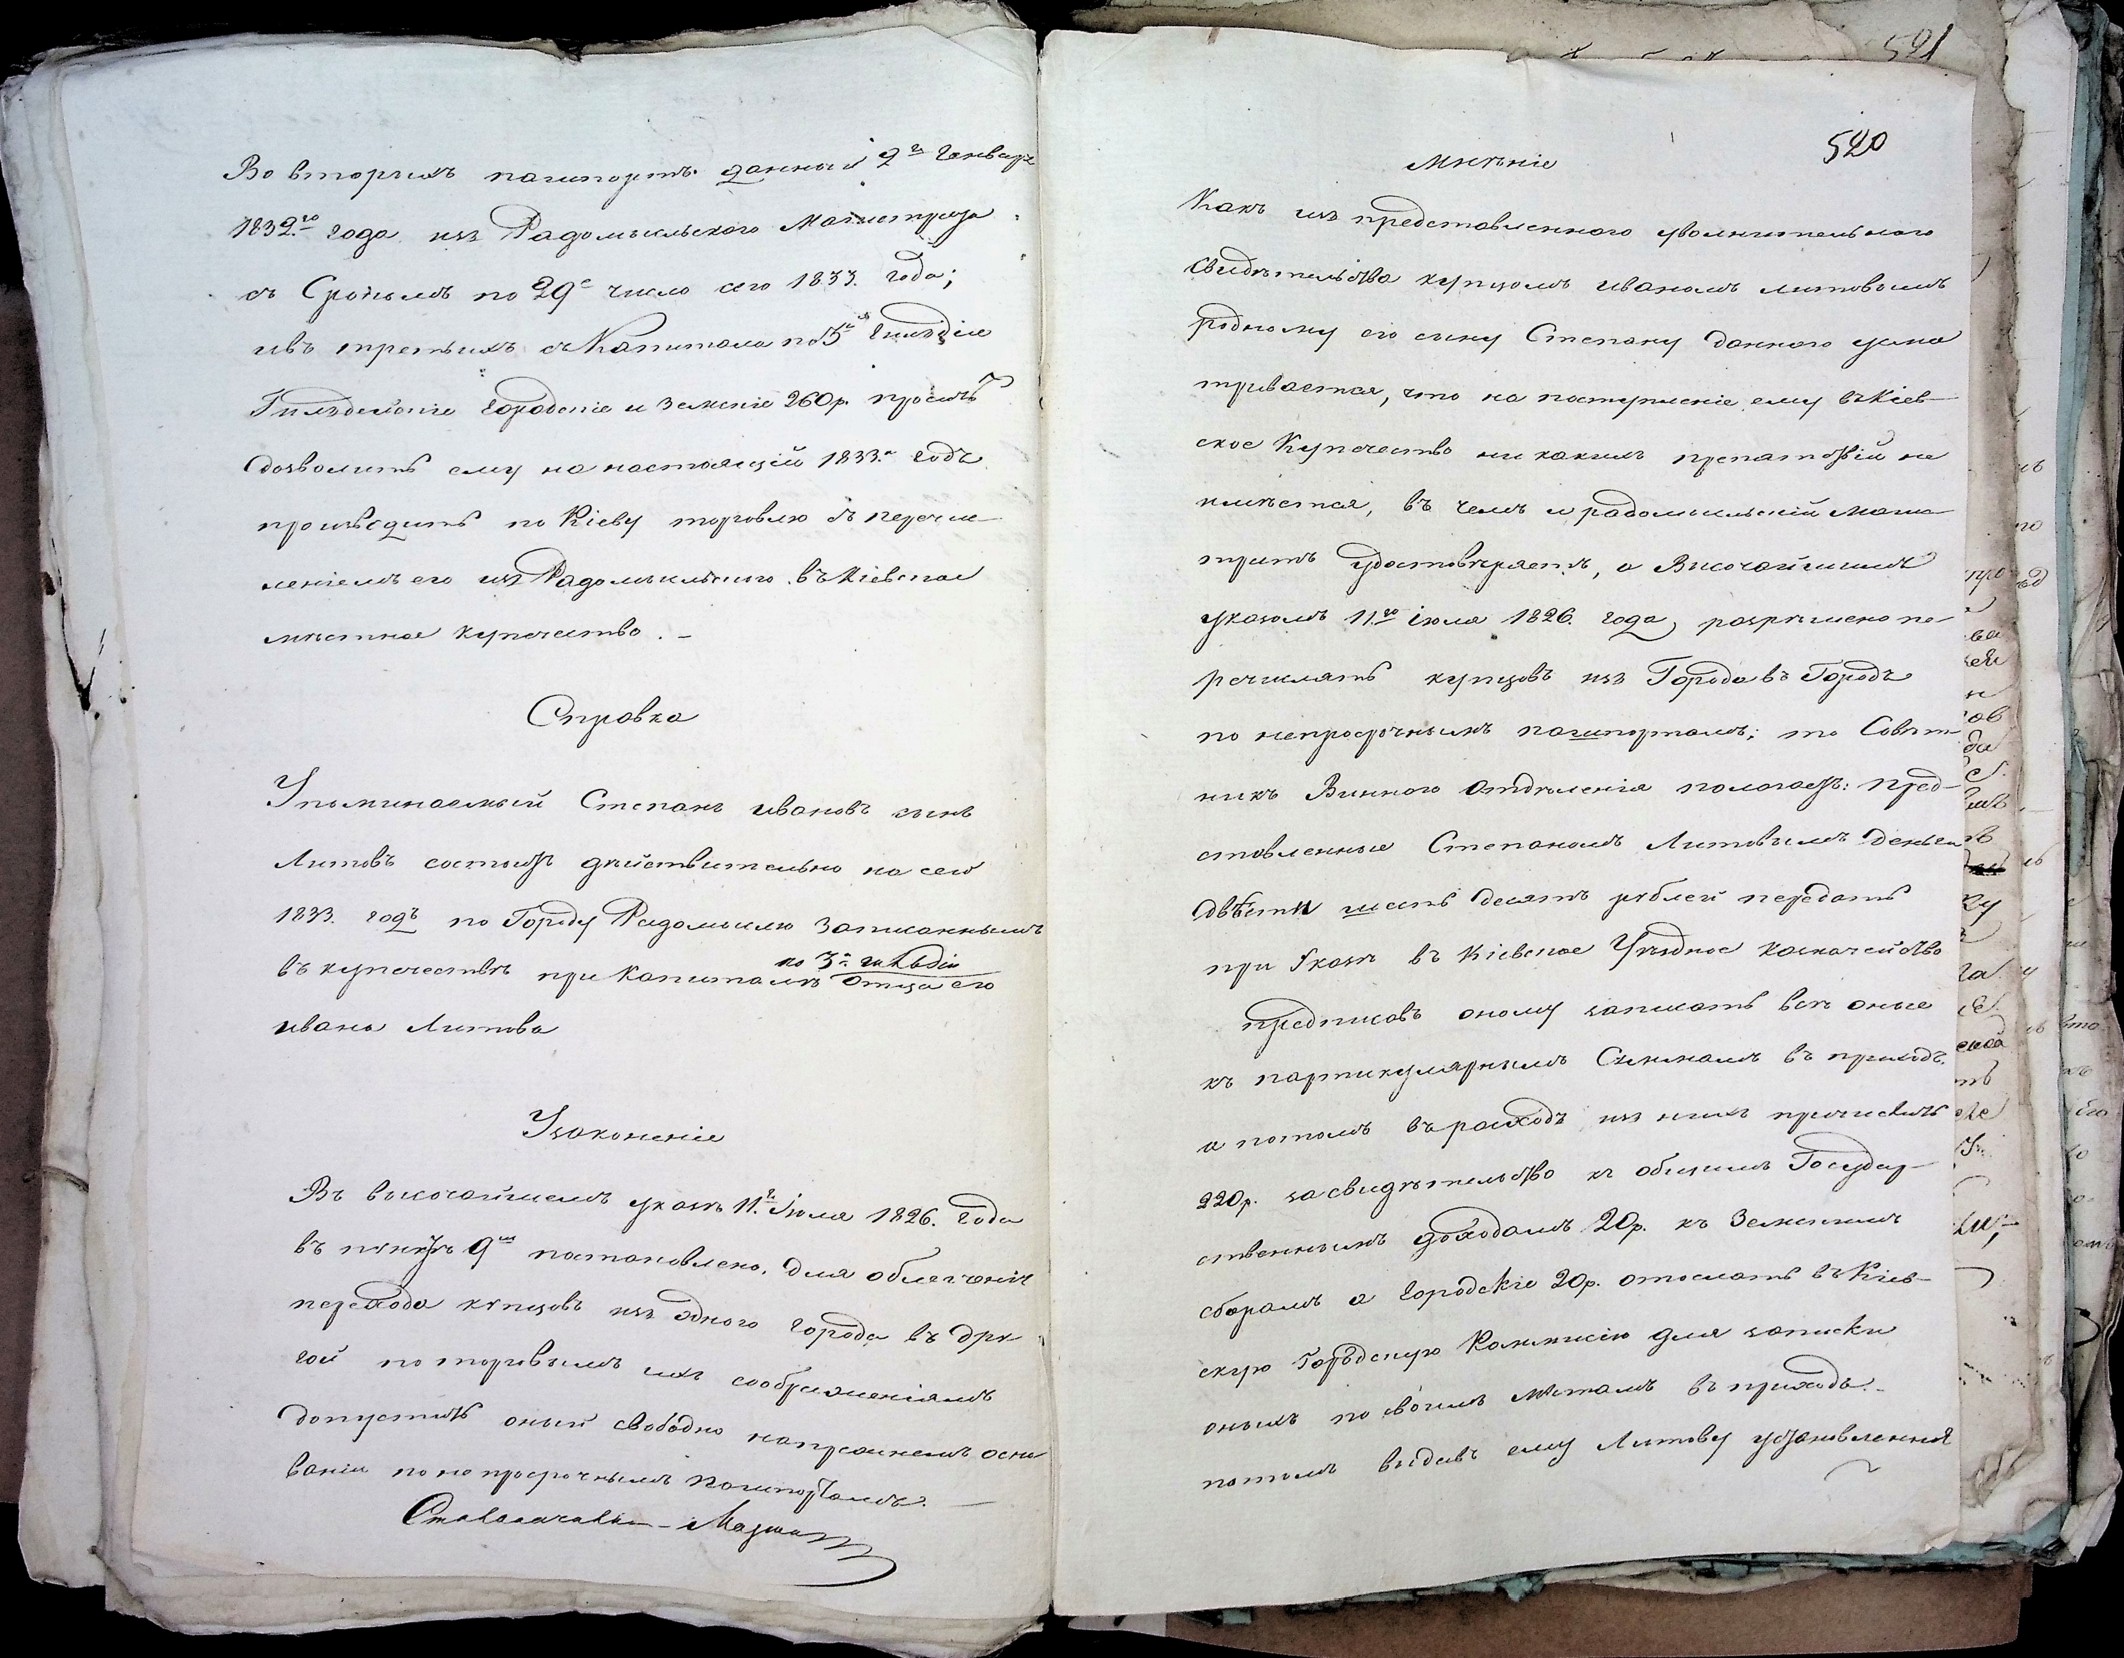 Во вторыхъ пашпортъ данный 2го Генваря
1832го года изъ Радомысльского Магистрата
съ Срокомъ по 29е число сего 1833. года;
ивъ третьихъ съ Капитала по 3й Гильдіи
Гильдейскіе Городскіе и Земскіе 260р. проситъ
дозволить ему на настоящій 1833й годъ
производить по Кіеву торговлю съ перечис-
леніемъ его изъ Радомысльского въ Кіевское
мѣстное купечество. –
Справка
Упоминаемый Степанъ Ивановъ сынъ
Литовъ состоитъ дѣйствительно на сей
1833. годъ по Городу Радомыслю Записаннымъ
по 3й гильдіи
въ купечествѣ при Капиталѣ отца его
Ивана Литова
Узаконеніе
Въ высочайшемъ указѣ 11го Іюля 1826. Года
въ пунктѣ 9мъ постановлено. для облегченія
перехода купцовъ изъ одного города въ дру
гой по торговымъ ихъ соображеніямъ
допустить оный свободно на прежнемъ осно
ваніи по не просрочнымъ пашпортамъ. –
521
520
Мнѣніе
Какъ изъ представленного увольнительного
свидѣтельства купцомъ Иваномъ Литовымъ
родному его сыну Степану данного усма
тривается, что на поступленіе ему въ Кіев-
ское Купечество ни какихъ препятствій не
имѣется, въ чемъ и радомысльскій Маги-
стратъ удостовѣряетъ, а Высочайшимъ
указомъ 11го іюля 1826. года, разрѣшено пе-
речислять купцовъ изъ Города въ Городъ
по непросрочнымъ пашпортамъ; то Совѣт-
никъ Винного отдѣленія полагаетъ: пред-
ставленные Степаномъ Литовымъ деньги
двѣсти шесть десятъ рублей передать
при Указѣ въ Кіевское Уѣздное казначейство
предписавъ оному записать всѣ оные
къ партикулярнымъ Суммамъ въ приходъ.
а потомъ въ расходъ изъ нихъ причислить
220р. за свидѣтельство къ общимъ Государ-
ственнымъ доходамъ 20р. къ Земскимъ
сборамъ а городскіе 20р. отослать въ Кіев-
скую Городскую Коммисію для записки
оныхъ по своимъ мѣстамъ въ приходъ. –
потомъ выдавъ ему Литову установленныя